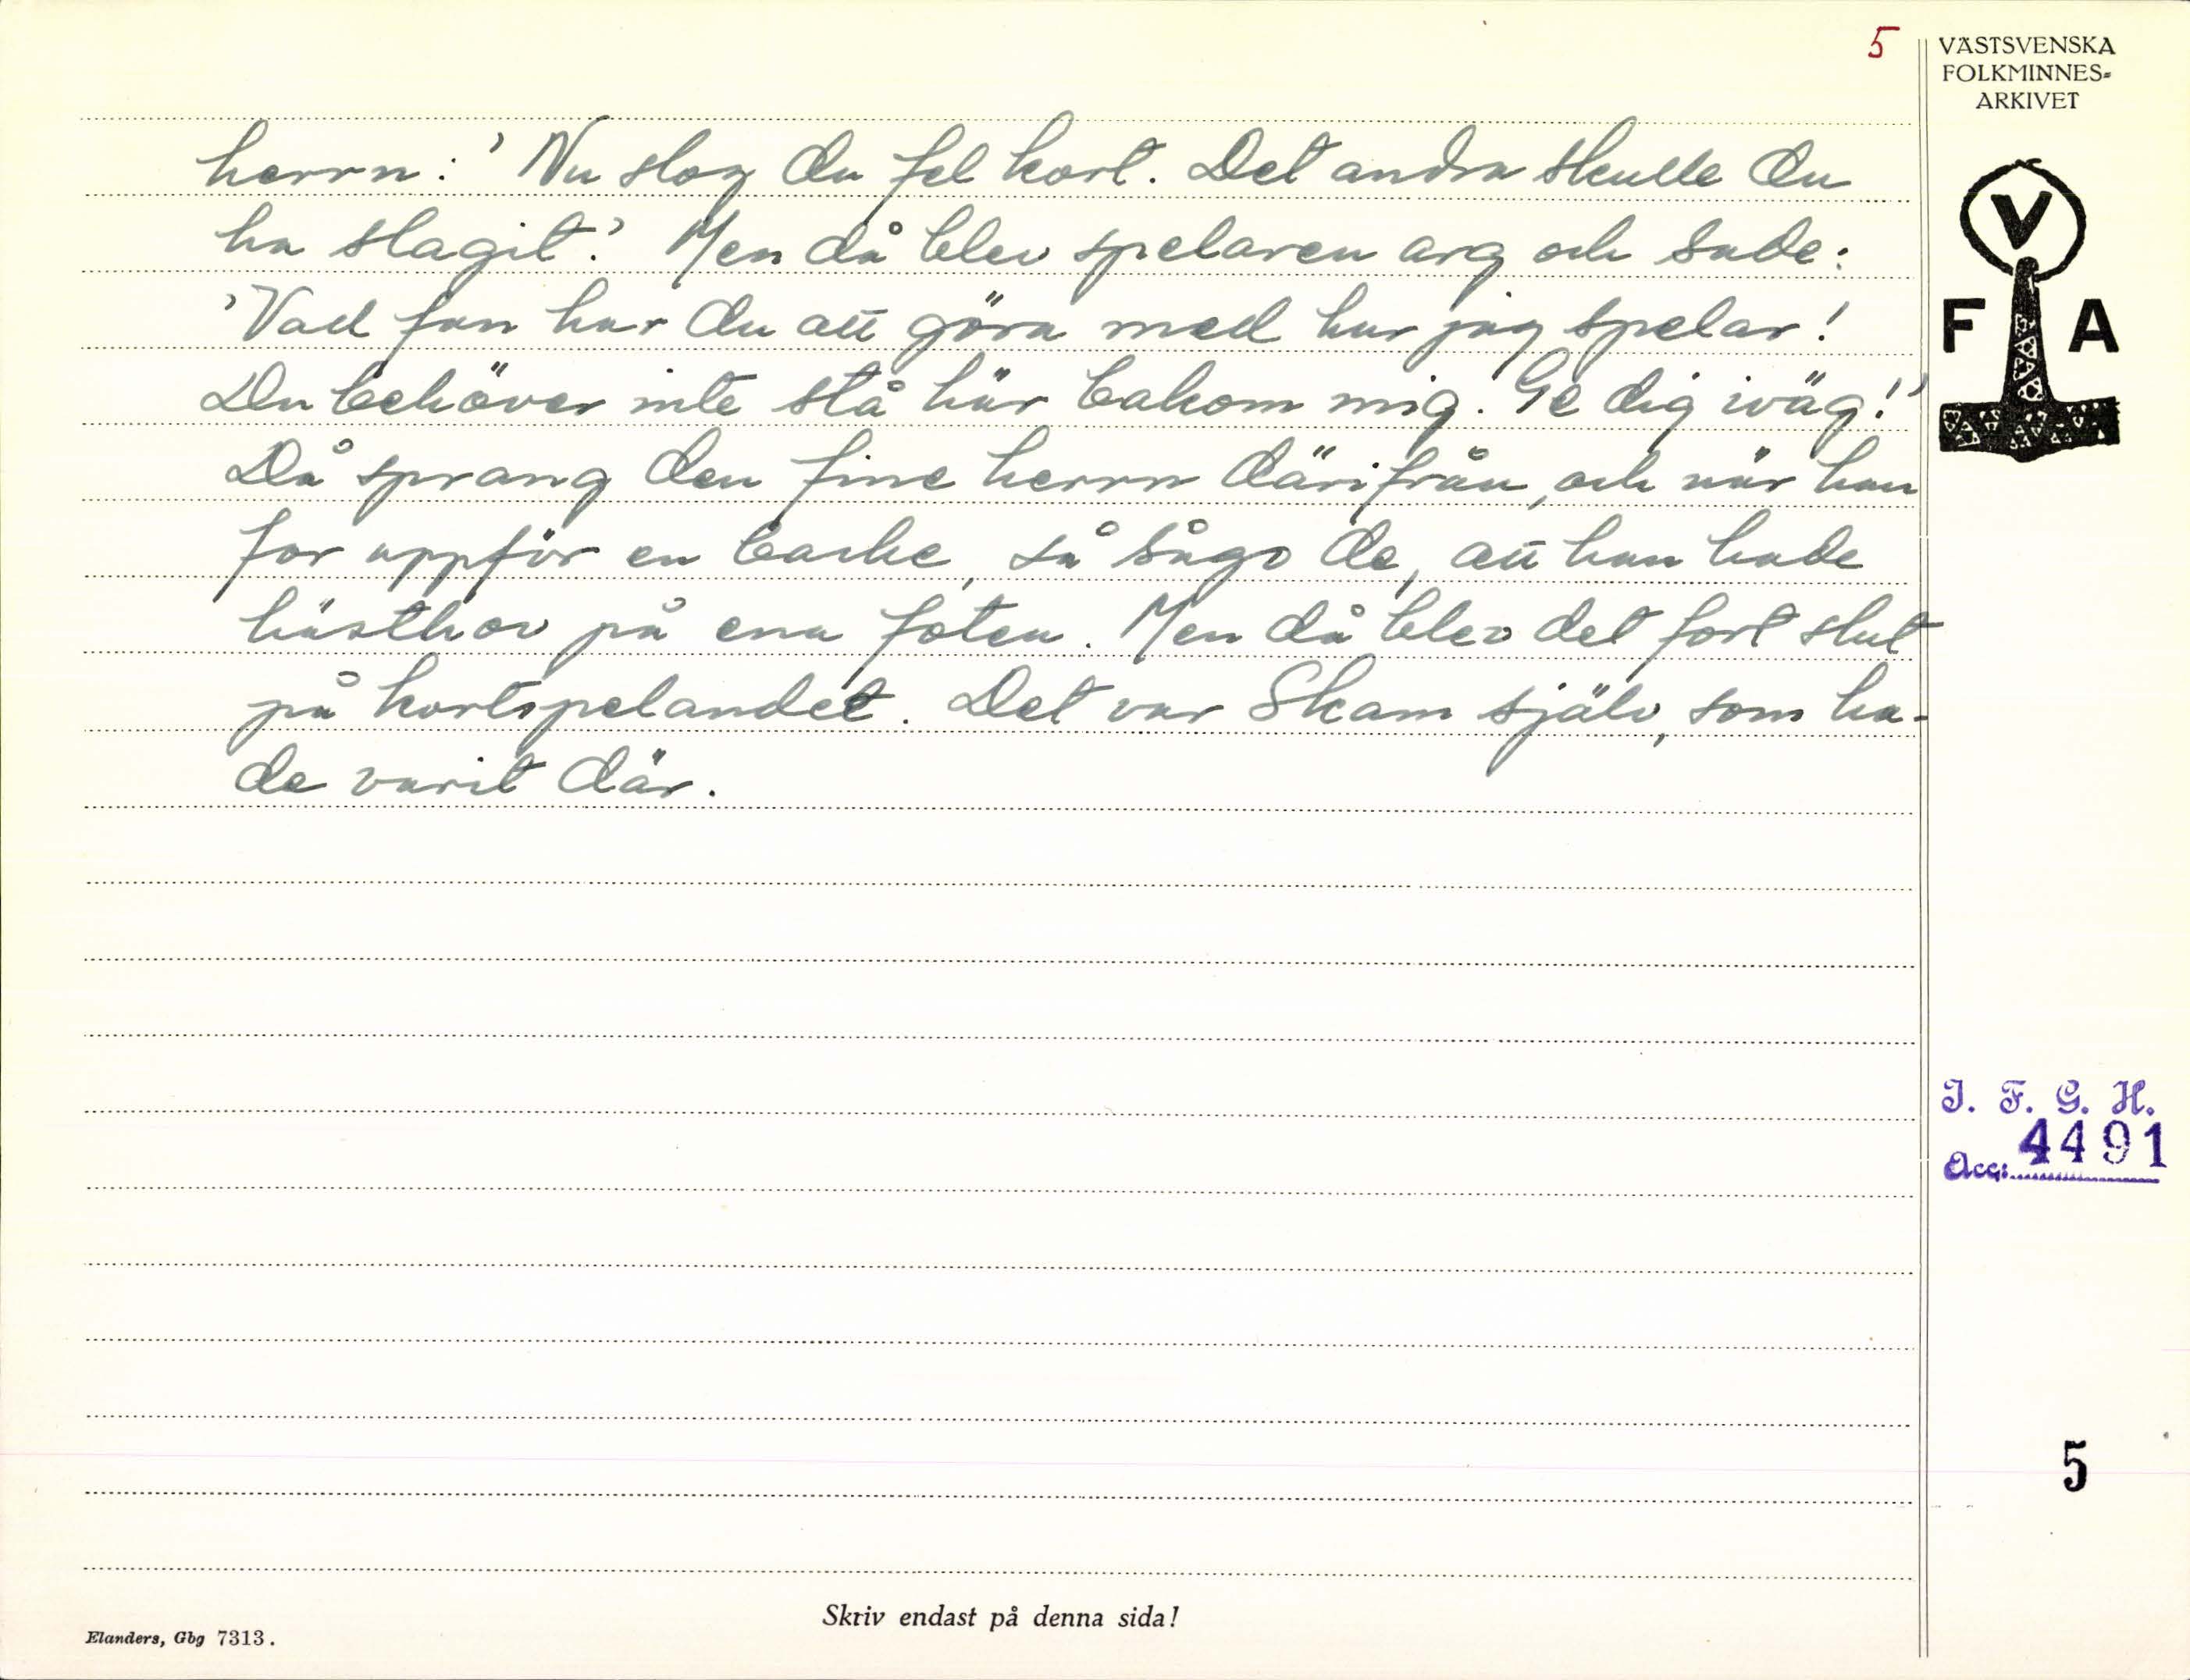 5
VÄSTSVENSKA
FOLKMINNES=
ARKIVET
herrn: 'Nu slog du fel kort. Det andra skulle du
ha slagit.' Men då blev spelaren arg och sade:
'Vad fan har du att göra med hur jag spelar!
Du behöver inte stå här bakom mig. Ge dig iväg!'
Då sprang den fine herrn därifrån, och när han
for uppför en backe, så sågo de, att han hade
hästhov på ena foten. Men då blev det fort slut
på kortspelandet. Det var Skam själv, som ha-
de varit där.
V
F A
I. F. G. H.
Acc: 4491
5
Skriv endast på denna sida!
Elanders, Gbg 7313.